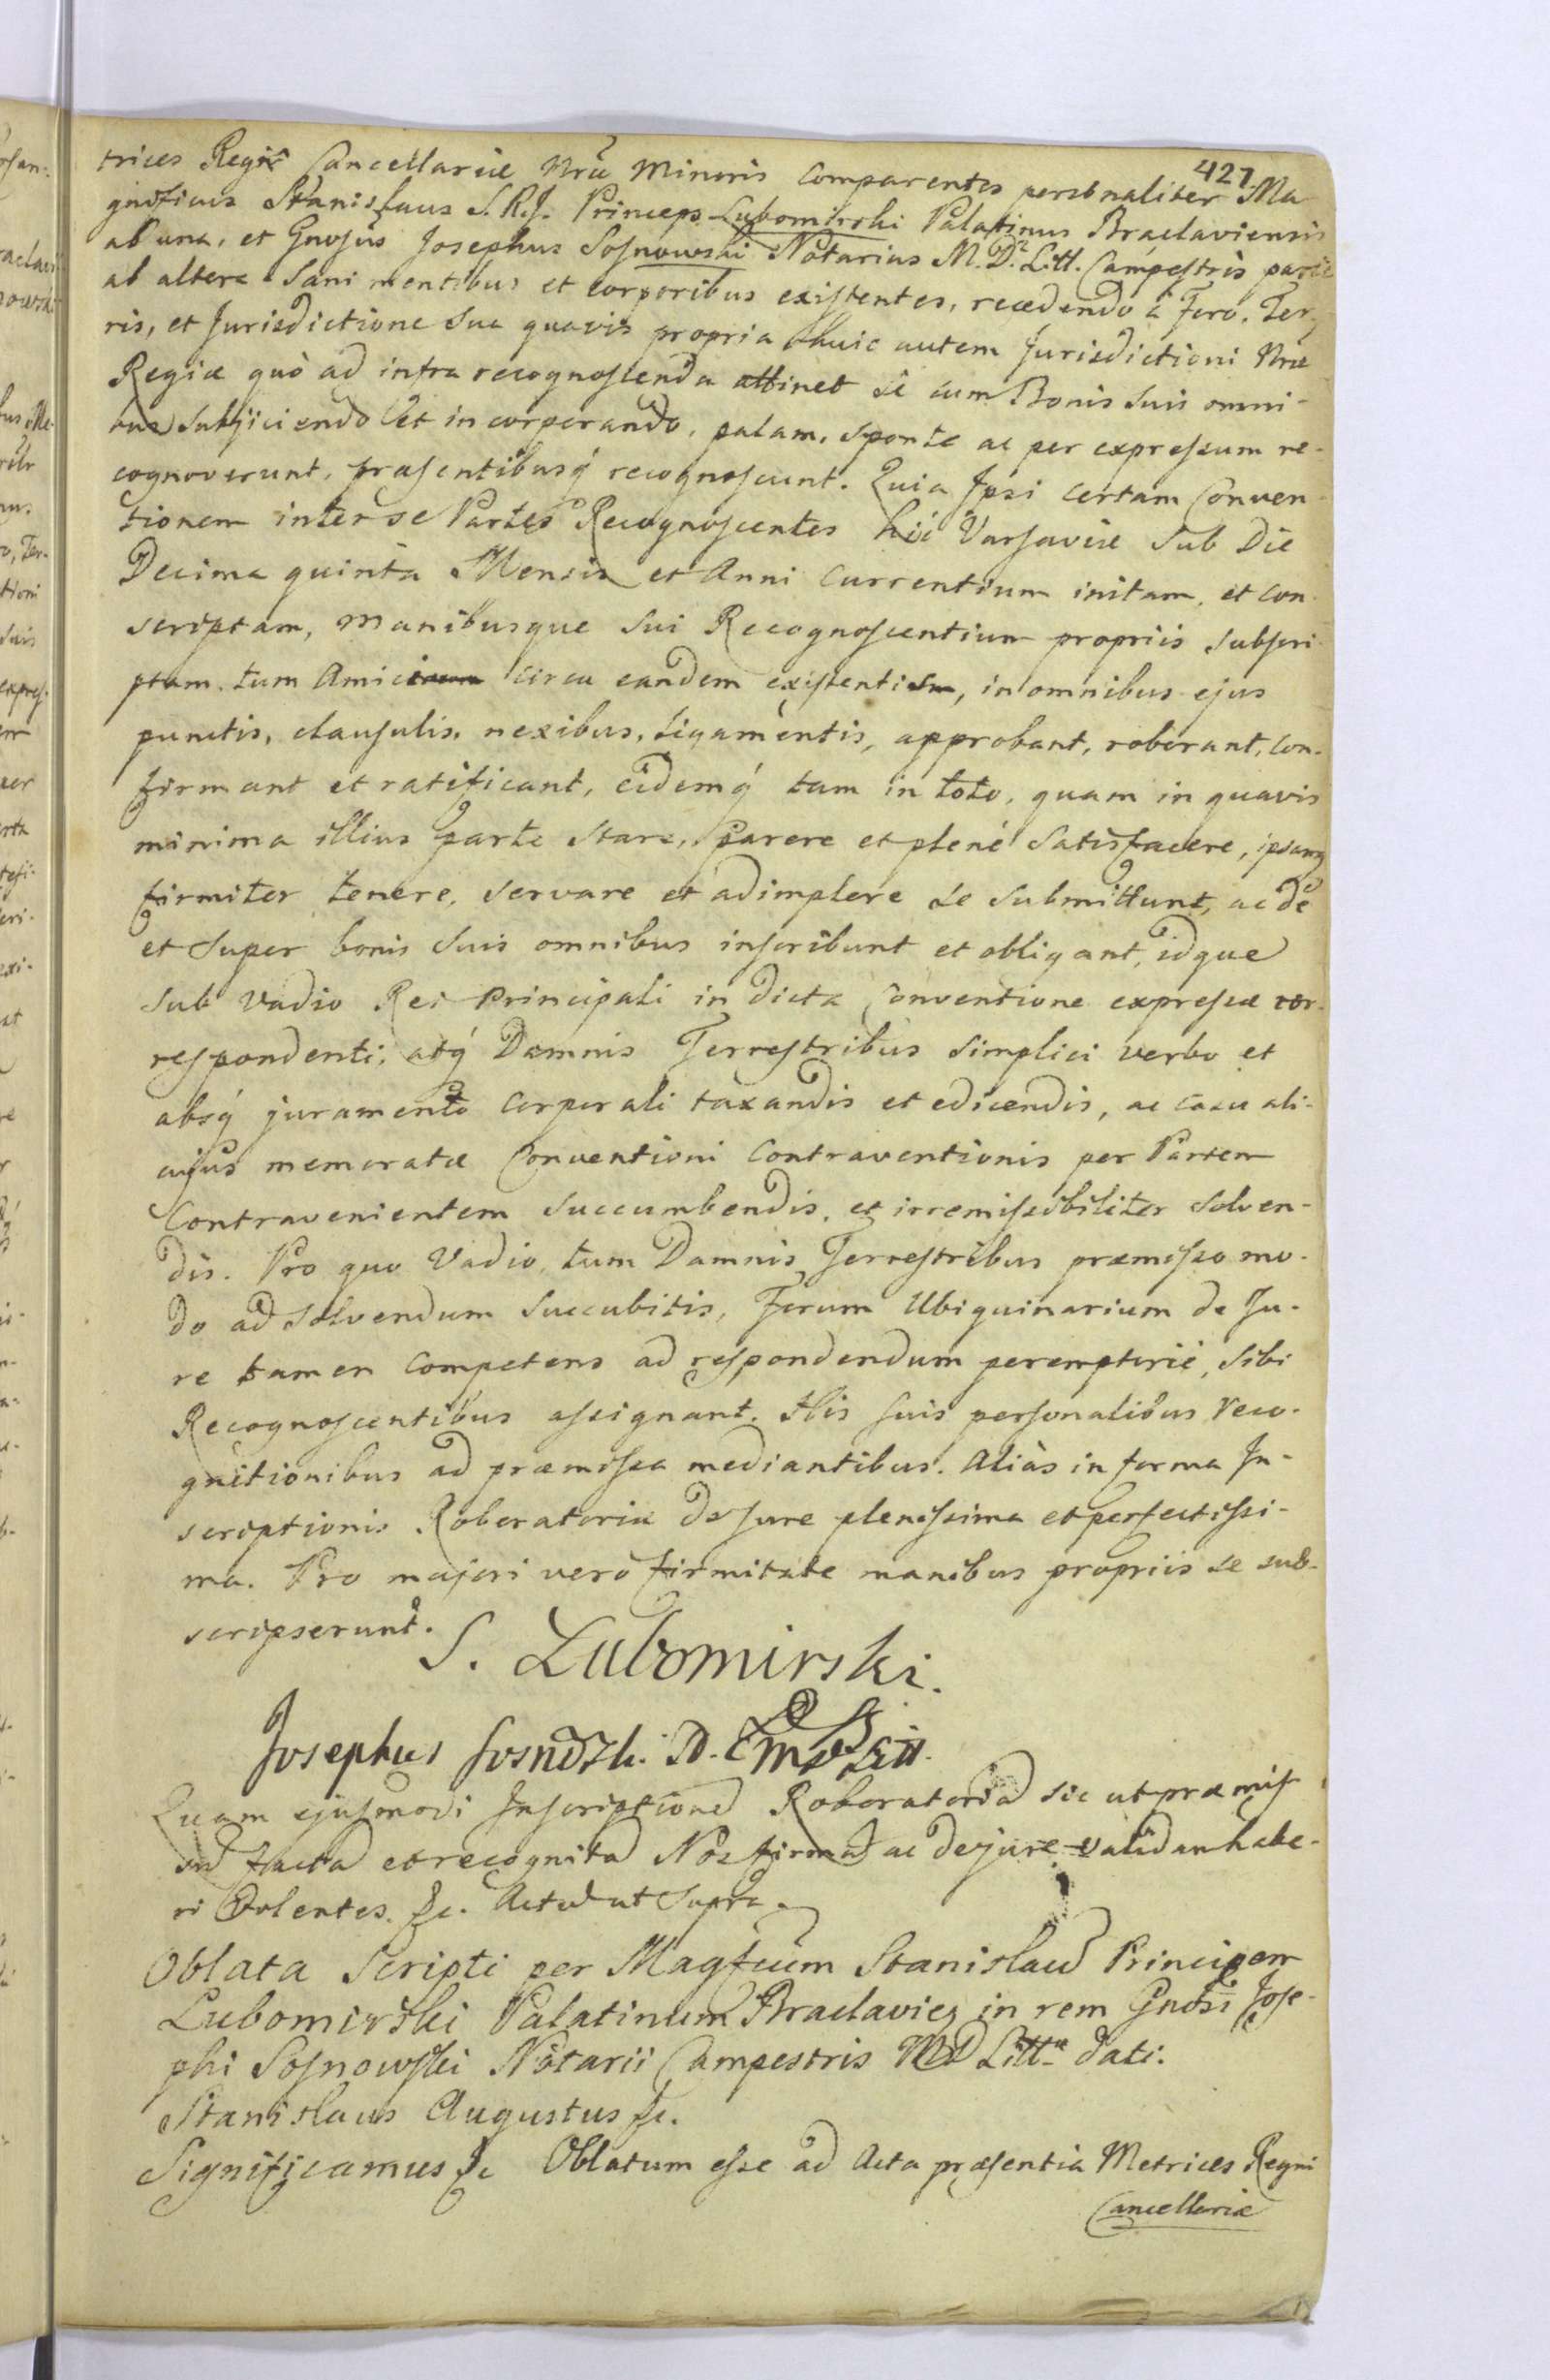 427
trices Regiæ Cancellariæ Nræ Minoris Comparentes personaliter Ma
gnificus Stanislaus S. R. J. Princeps Lubomirski Palatinus Braclaviensis
ab una, et Gnosus Josephus Sosnowski Notarius M. D. Litt. Campestris parte
ab altera Sani mentibus et corporibus existentes, recedendo à Foro, Ter-
ris, et Jurisdictione Sua quavis propria huic autem Jurisdictioni Nræ
Regiæ quò ad infra recognoscenda attinet sè cum Bonis Suis omni-
bus Subjiciendo et incorporando, palam, sponte ac per expressum re-
cognoverunt, præsentibusq́ recognoscunt. Quia Ipsi certam Conven-
tionem inter se Partes Recognoscentes hìc Varsaviæ Sub Die
Decima quinta Mensis et Anni Currentium initam, et con-
scriptam, manibusque Sui Recognoscentium propriis Subscri-
ptam, tum Amicorum circa eandem existentium, in omnibus ejus
punctis, clausulis, nexibus, Ligamentis, approbant, roborant, con-
firmant et ratificant, eidemq́ tam in toto, quam in quavis
minima illius parte Stare, Parere et plenè Satisfacere, ipsamq
firmiter tenere, servare et adimplere se Submittunt, ac de
et Super bonis Suis omnibus inscribunt et obligant, idque
Sub Vadio Rei Principali in dicta Conventione expressæ cor-
respondenti, atq́ Damnis Terrestribus Simplici verbo et
absq́ juramento Corporali taxandis et edicendis, ac casu ali-
cujus memoratæ Conventioni Contraventionis per Partem
Contravenientem Succumbendis, et irremissibiliter Solven-
dis. Pro quo Vadio, tum Damnis Terrestribus præmisso mo-
do ad Solvendum Succubitis, Forum Ubiquinarium de Ju-
re tamen Competens ad respondendum peremptoriè, Sibi
Recognoscentibus assignant. His Suis personalibus reco-
gnitionibus ad præmissa mediantibus. Aliàs in forma In-
scriptionis Roboratoriæ de Jure plenissima et perfectissi-
ma. Pro majori verò firmitate manibus propriis se sub-
scripserunt.
S. Lubomirski.
Josephus Litt.
Quam ejusmodi Inscriptione Roboratoria sic ut præmis
facta et recognita Nos firma ac de jure valida habe-
ri Volentes. &c. Actu ut Supra.
Oblata Scripti per Magfcum Stanislau Principem
Lubomirski Palatinum Braclavien in rem Gnosi Jose-
phi Sosnowski Notarii Campestris M D Litt. dati.
Stanislaus Augustus &c.
Significamus &c Oblatum esse ad Acta præsentia Metrices Regni
Cancellariæ